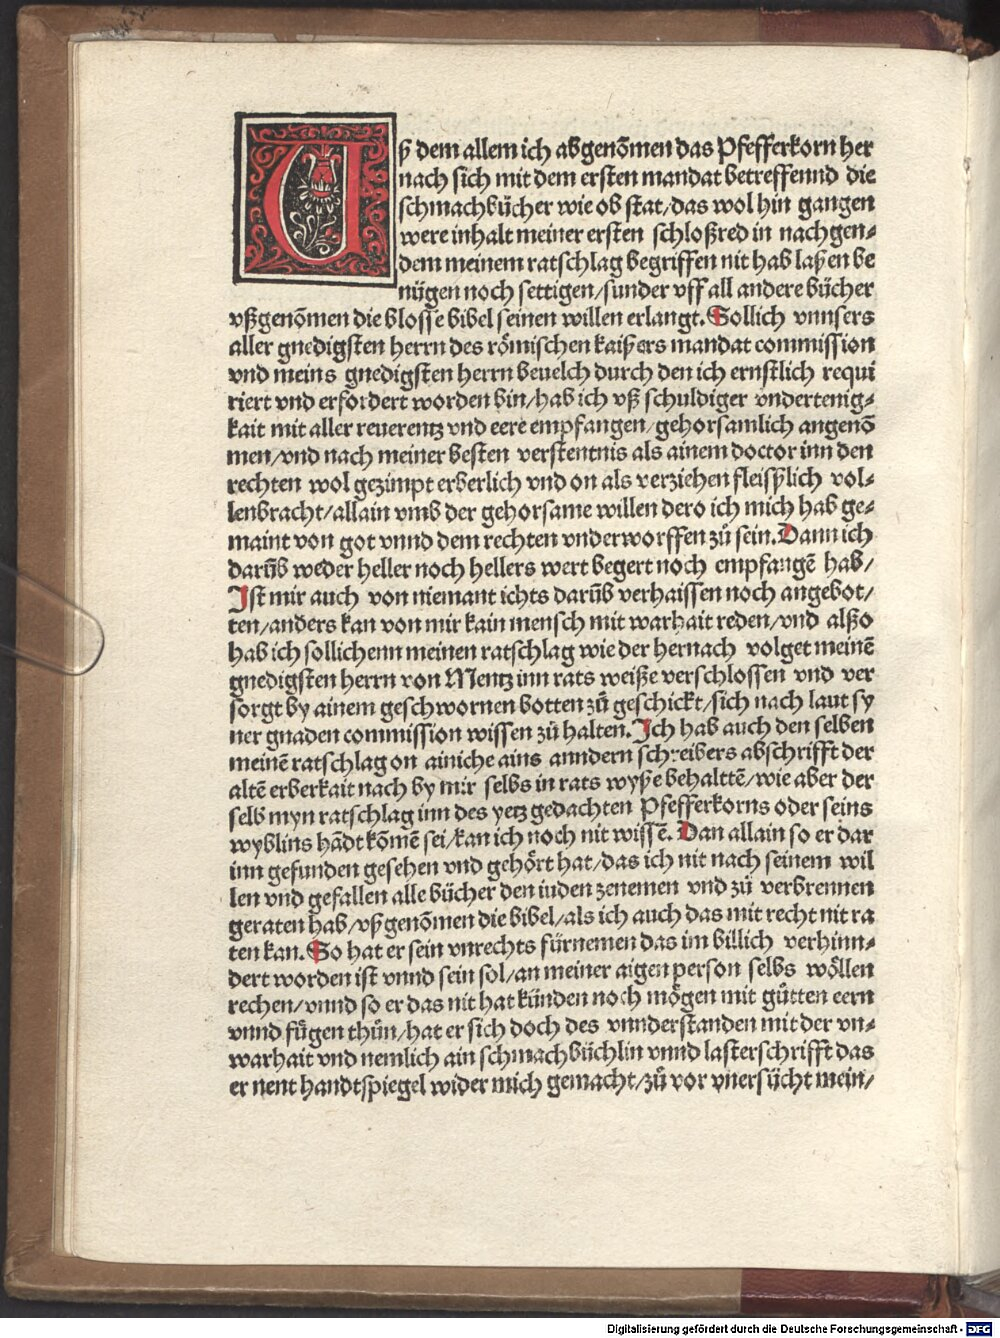 Uß dem allem ich abgenōmen das Pfefferkorn her
nach sich mit dem ersten mandat betreffennd die
schmachbücher wie ob stat/das wol hin gangen
were inhalt meiner ersten schloßred in nachgen⸗
dem meinem ratschlag begriffen nit hab laßen be
nügen noch settigen/sunder vff all andere bücher
vßgenōmen die blosse bibel seinen willen erlangt. Sollich vnnsers
aller gnedigsten herrn des römischen kaißers mandat commission
vnd meins gnedigsten herrn beuelch durch den ich ernstlich requi
riert vnd erfordert worden bin/hab ich vß schuldiger vndertenig⸗
kait mit aller reuerentz vnd eere empfangen/gehorsamlich angenō
men/vnd nach meiner besten verstentnis als ainem doctor inn den
rechten wol gezimpt erberlich vnd on als verziehen fleißlich vol⸗
lenbracht/allain vmb der gehorsame willen dero ich mich hab ge⸗
maint von got vnnd dem rechten vnderworffen zů sein. Dann ich
darūb weder heller noch hellers wert begert noch empfangē hab/
Ist mir auch von niemant ichts darūb verhaissen noch angebot/
ten/anders kan von mir kain mensch mit warhait reden/vnd alßo
hab ich sollichenn meinen ratschlag wie der hernach volget meinē
gnedigsten herrn von Mentz inn rats weiße verschlossen vnd ver
sorgt by ainem geschwornen botten zů geschickt/sich nach laut sy
ner gnaden commission wissen zů halten. Ich hab auch den selben
meinē ratschlag on ainiche ains anndern schreibers abschrifft der
altē erberkait nach by mir selbs in rats wyße behalttē/wie aber der
selb myn ratschlag inn des yetz gedachten Pfefferkorns oder seins
wyblins hādt kōmē sei/kan ich noch nit wissē. Dan allain so er dar
inn gefunden gesehen vnd gehört hat/das ich nit nach seinem wil
len vnd gefallen alle bücher den iuden zenemen vnd zů verbrennen
geraten hab/vßgenōmen die bibel/als ich auch das mit recht nit ra
ten kan. So hat er sein vnrechts fürnemen das im billich verhinn⸗
dert worden ist vnnd sein sol/an meiner aigen person selbs wöllen
rechen/vnnd so er das nit hat künden noch mögen mit gütten eern
vnnd fůgen thůn/hat er sich doch des vnnderstanden mit der vn⸗
warhait vnd nemlich ain schmachbüchlin vnnd lasterschrifft das
er nent handtspiegel wider mich gemacht/zů vor vnersůcht mein/
Digitalisierung gefördert durch die Deutsche Forschungsgemeinschaft - DFG